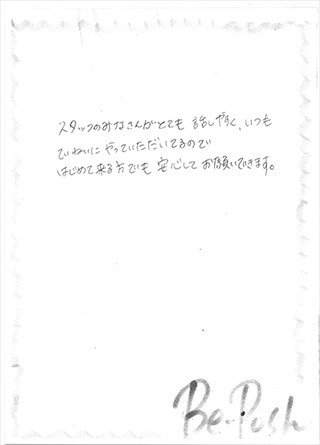 スタッフのみなさんがとても話しやすく、いつも
ていねいにやっていただいてるので
はじめて来る方でも安心してお願いできます。
Be-Push